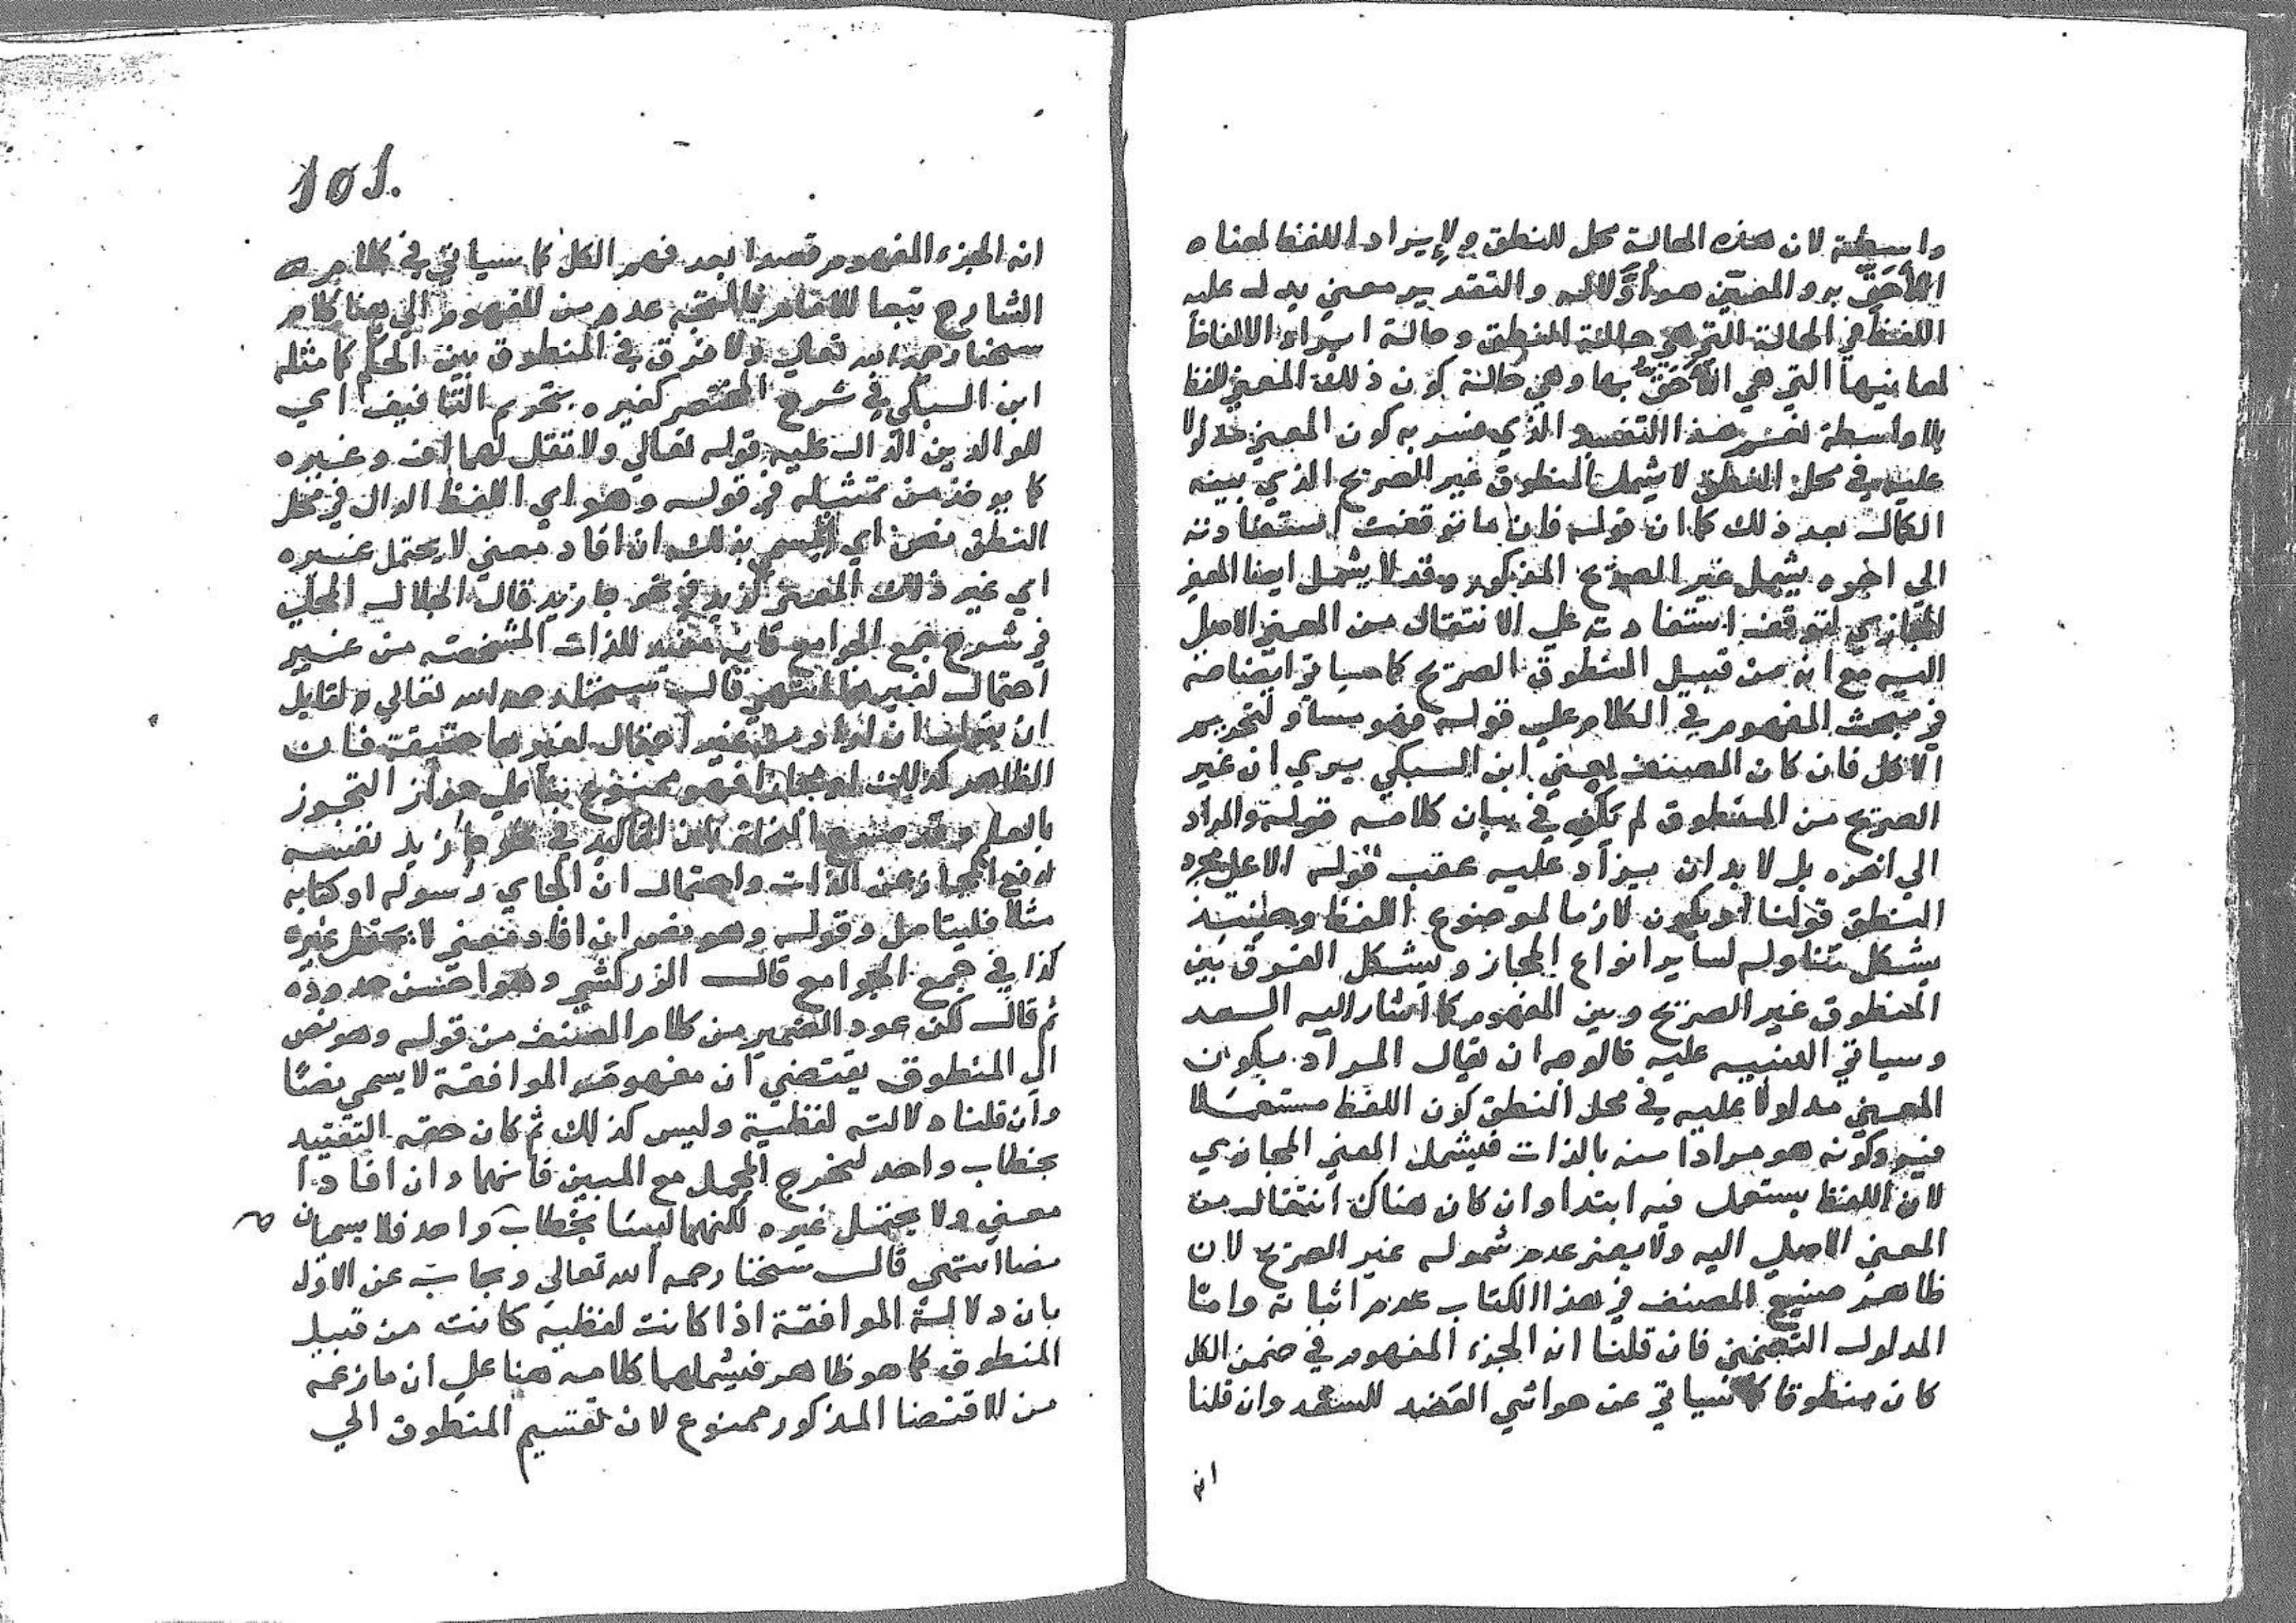 واسطة لان هذه الحالة محل للنطق ولإيراد اللفظ لمعناه
الأحق به والمعين هو أولا له والتقدير معني يدل عليه
اللفظ في الحالة التي هي حالة النطق وحالة ايراد الالفاظ
لمعانيها التي هي الأحق بها وهي حالة كون ذلك المعني للفظ
بلا واسطة نعم هذا التفسير الذي فسر به كون المعني مدلولا
عليه في محل النطق لا يشمل المنطوق غير الصريح الذي بينه
الكمال بعد ذلك كما ان قوله فان ما توقفت استفادته
الي اخره يشمل غير الصريح المذكور وقد لا يشمل ايضا المعني
المجازي لتوقف استفادته علي الانتقال من المعني الاصلي
اليه مع انه من قبيل المنطوق الصريح كما سياتي ايضاحه
في مبحث المفهوم في الكلام علي قوله وهو مساو لتحريم
الاكل فان كان المصنف يعني ابن السبكي يري ان غير
الصريح من المنطوق لم يكف في بيان كلامه قوله والمراد
الي اخره بل لا بد ان يزاد عليه عقب قوله الا علي مجرد
النطق قولنا او يكون لازما لموضوع اللفظ وحينئذ
يشكل تناوله لساير انواع المجاز ويشكل الفرق بين
المنطوق غير الصريح وبين المفهوم كما اشار اليه السعد
وسياتي التنبيه عليه فالوجه ان يقال المراد بكون
المعني مدلولا عليه في محل النطق كون اللفظ مستعملا
فيه وكونه هو مرادا منه بالذات فيشمل المعني المجازي
لان اللفظ يستعمل فيه ابتدا وان كان هناك انتقال من
المعني الاصلي اليه ولا يضر عدم شموله غير الصريح لان
ظاهر صنيع المصنف في هذا الكتاب عدم اثباته وامّا
المدلول التضمني فان قلنا انه الجزء المفهوم في ضمن الكل
كان منطوقا كما سياتي عن حواشي العضد للسعد وان قلنا
انه
101.
انه الجزء المفهوم قصدا بعد فهم الكل كما سياتي في كلام
الشارح تبعا للامام فالمتجه عده من المفهوم الي هنا كلام
شيخنا رحمه الله تعالي ولا فرق في المنطوق بين الحكم كما مثله
ابن السبكي في شرح المختصر كغيره بتحريم التافيف اي
للوالدين الدال عليه قوله تعالي ولا تقل لهما اف وغيره
كما يوخذ من تمثيله في قوله وهو اي اللفظ الدال في محل
النطق نص اي يسمي بذلك ان افاد معني لا يحتمل غيره
اي غير ذلك المعني كزيد في نحو جا زيد قال الجلال المحلي
في شرح جمع الجوامع فانه مفيد للذات المشخصة من غير
احتمال لغيرها انتهي قال شيخنا رحمه الله تعالي ولقايل
ان يقول ان اراد من غير احتمال لغيرها حقيقة فان
الظاهر كذلك او مجازا فهو ممنوع بنا علي جواز التجوز
بالعلم وقد صرح النحاة بان التاكيد في نحو جا زيد نفسه
لرفع المجاز عن الذات واحتمال ان الجاي رسوله او كتابه
مثلا فليتامل وقوله وهو نص ان افاد معني لا يحتمل غيره
كذا في جمع الجوامع قال الزركشي وهو احسن حدوده
ثم قال لكن عود الضمير من كلام المصنف من قوله وهو نص
الي المنطوق يقتضي ان مفهوم الموافقة لا يسمي نصّا
وان قلنا دلالته لفظية وليس كذلك ثم كان حقه التقييد
بخطاب واحد ليخرج المجمل مع المبين فانهما وان افادا
معني ولا يحتمل غيره لكنهما ليسا بخطاب واحد فلا يسميان
نصا انتهي قال شيخنا رحمه الله تعالي ويجاب عن الاول
بان دلالة الموافقة اذا كانت لفظية كانت من قبيل
المنطوق كما هو ظاهر فيشملهما كلامه هنا علي ان ما زعمه
من الاقتضا المذكور ممنوع لان تقسيم المنطوق الي